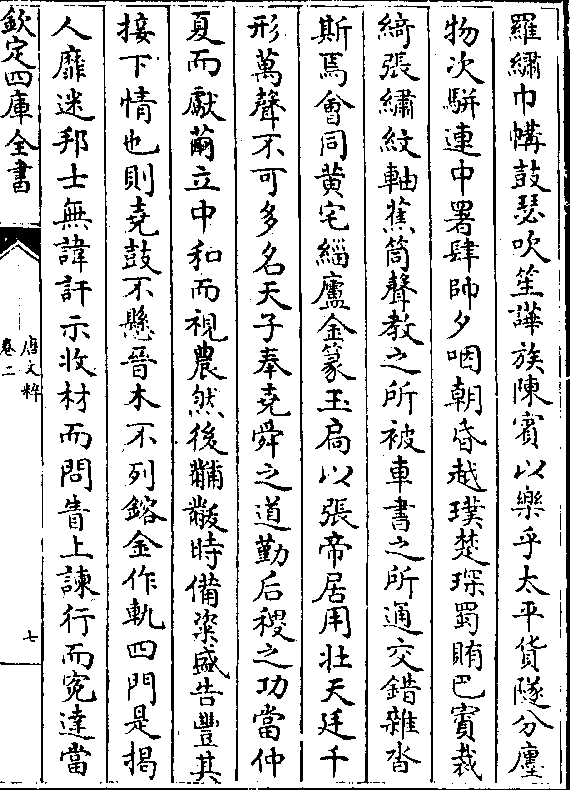 羅繡巾幬鼓瑟吹笙譁族陳賓以樂乎太平貨隧分廛
物次駢連中署肆師夕咽朝昏越璞楚琛蜀賄巴賨裁
綺張繡紋軸蕉筒聲教之所被車書之所通交錯雜沓
斯焉會同黄宅緇廬金篆玉扃以張帝居用壯天廷千
形萬聲不可多名天子奉堯舜之道勤后稷之功當仲
夏而獻繭立中和而視農然後黼黻時備粢盛告豐其
接下情也則堯鼓不懸晉木不列鎔金作軌四門是揭
人靡迷邦士無諱訐示收材而問眚上諫行而寃達當
欽定四庫全書
唐文粹
卷二
七